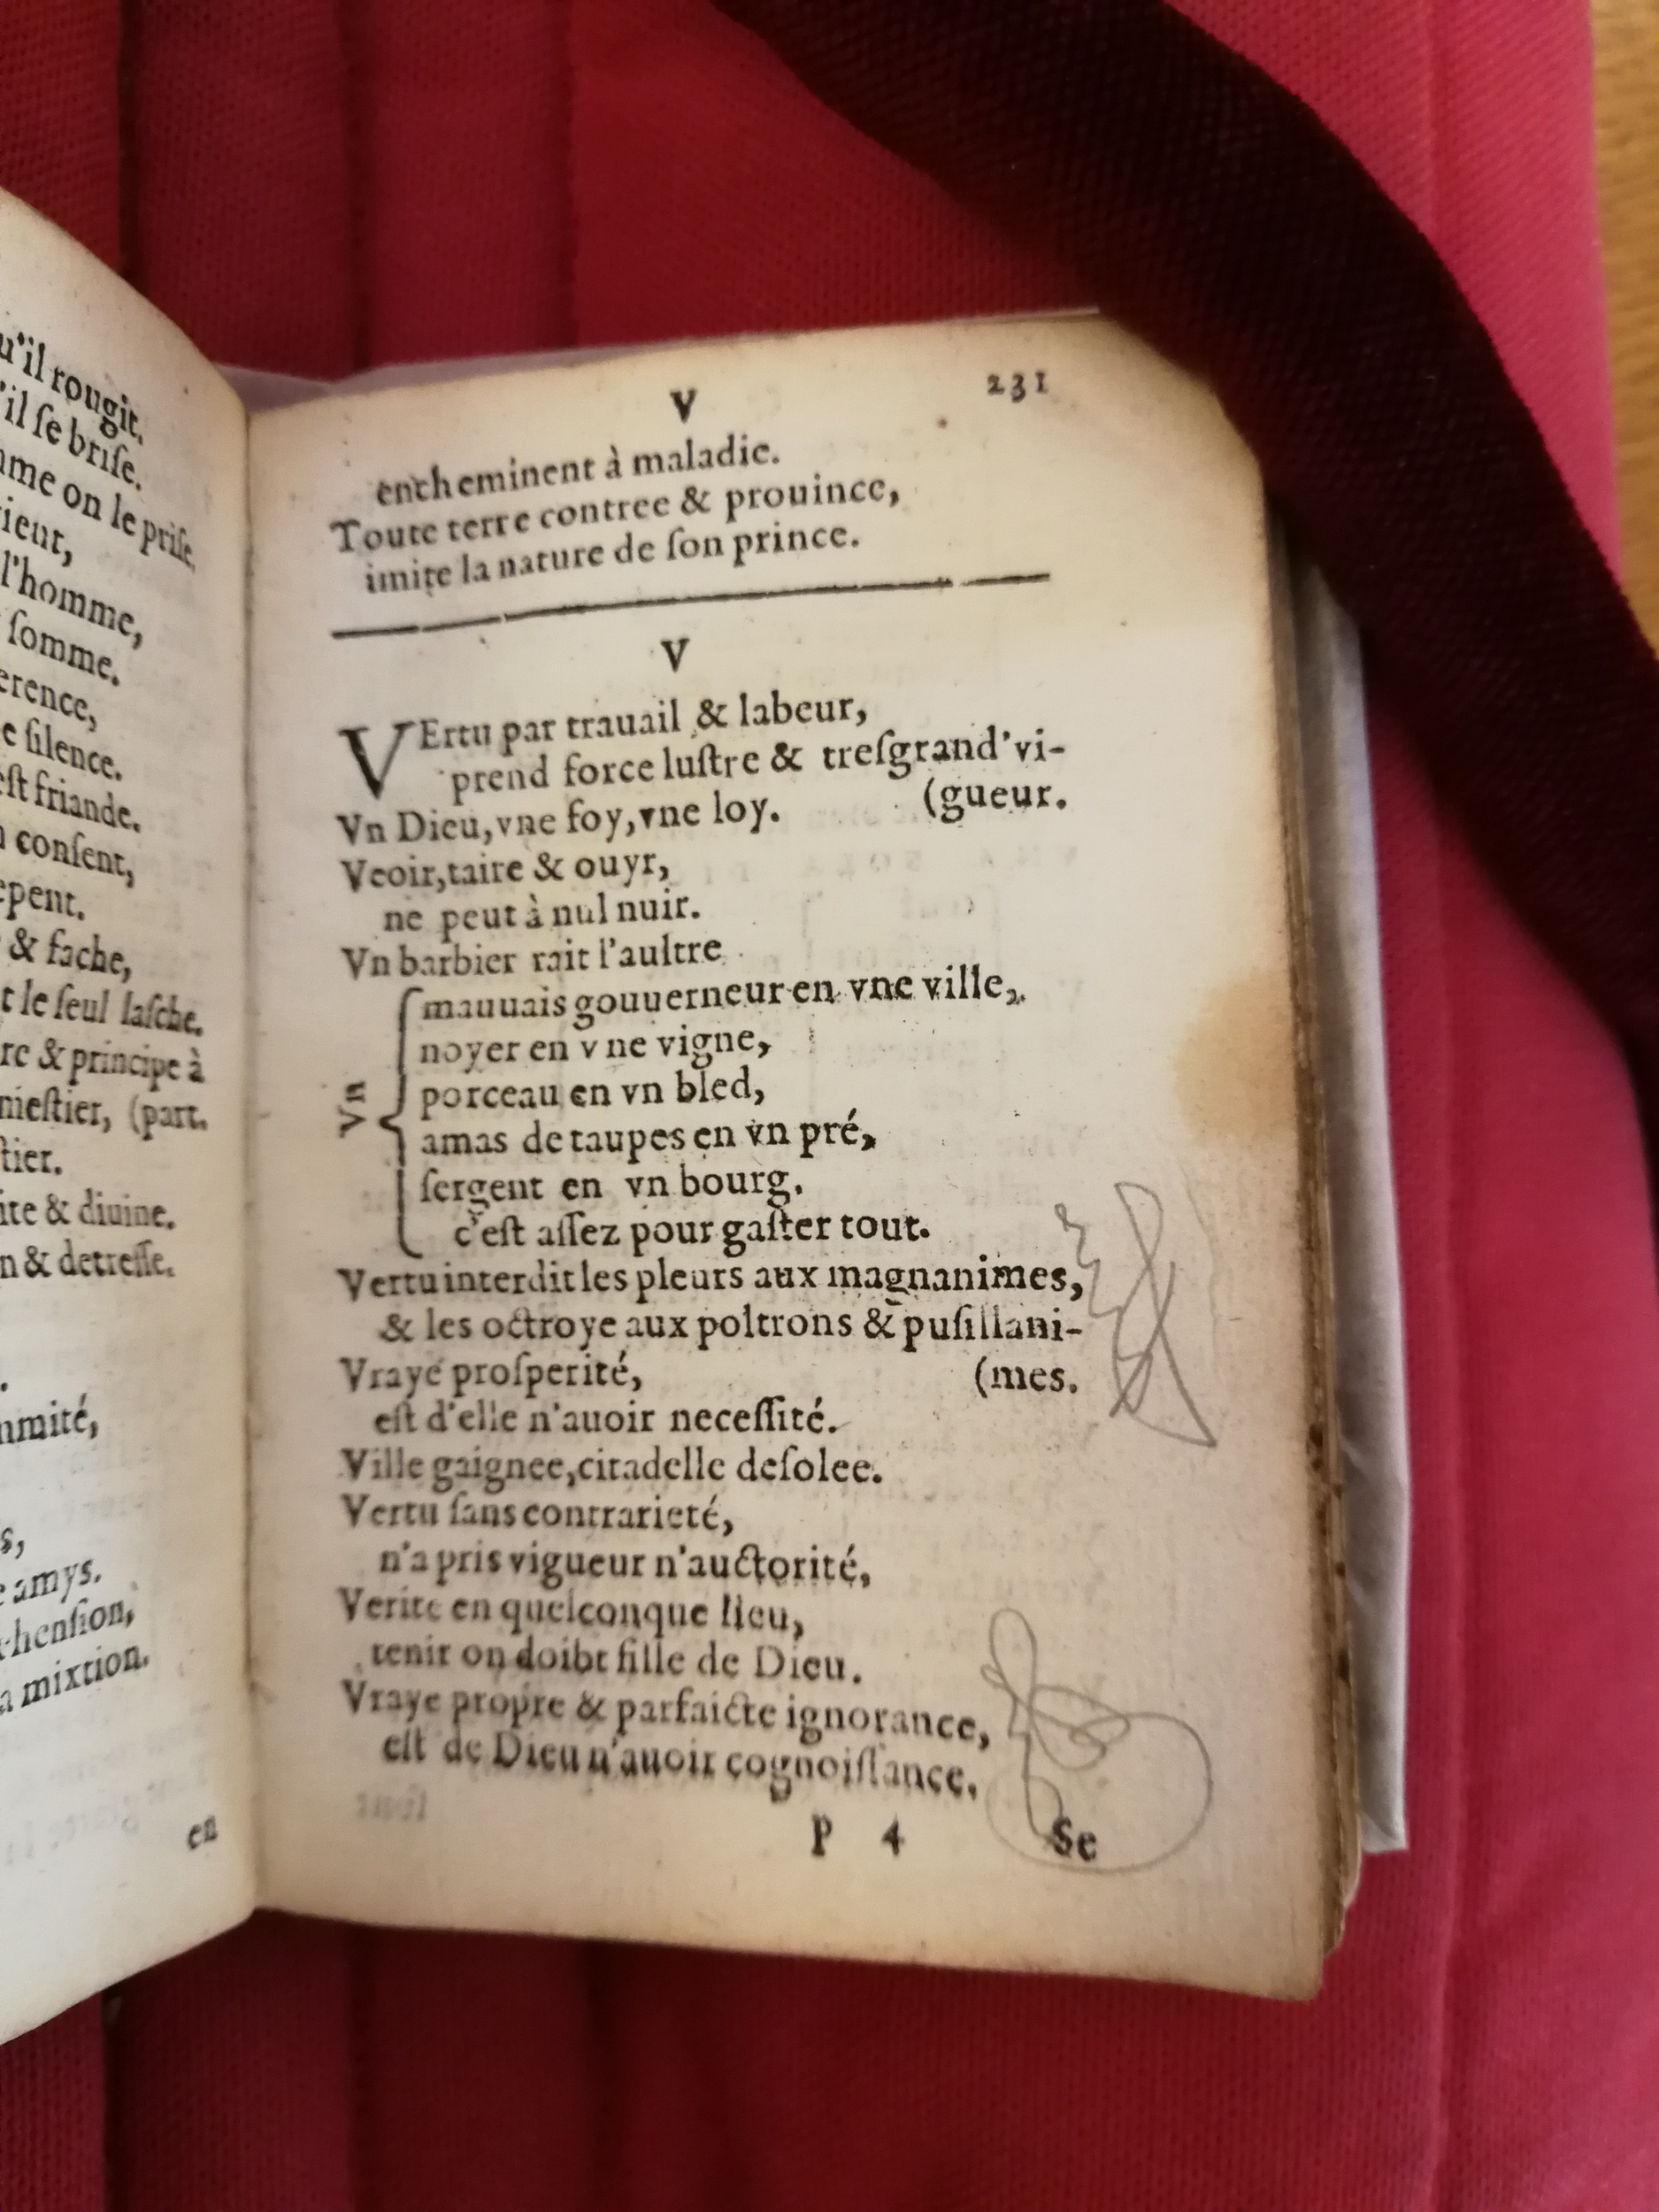 u'il rougit.
'il ſe briſe.
me on le priſe.
ient,
l'homme,
ſomme.
erence,
e ſilence.
eſt friande.
conſent,
epent.
& fache,
t le ſeul laſche.
re & principe à
meſtier, (part.
ſtier.
ite & diuine.
n & detreſſe.
.
nmité,
s,
e amys.
rehenſion,
a mixtion.
en
V 231
encheminent à maladie.
Toute terre contree & prouince,
imite la nature de ſon prince.
V
VErtu par trauail & labeur,
prend force luſtre & treſgrand'vi-
Vn Dieu, vne foy, vne loy. (gueur.
Veoir, taire & ouyr,
ne peut à nul nuir.
Vn barbier rait l'aultre
Vn
mauuais gouuerneur en vne ville,
noyer en vne vigne,
porceau en vn bled,
amas de taupes en vn pré,
ſergent en vn bourg.
c'eſt aſſez pour gaſter tout.
Vertu interdit les pleurs aux magnanimes,
& les octroye aux poltrons & puſillani-
Vraye proſperité, (mes.
eſt d'elle n'auoir neceſſité.
Ville gaignee, citadelle deſolee.
Vertu ſans contrarieté,
n'a pris vigueur n'auctorité,
Verite en quelconque lieu,
tenir on doibt fille de Dieu.
Vraye propre & parfaicte ignorance,
eſt de Dieu n'auoir cognoiſſance.
P 4 Se